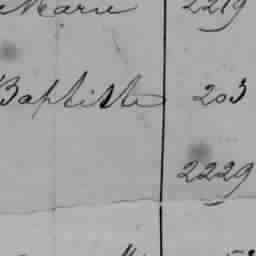 Marie 2219
Baptiste 203
2229